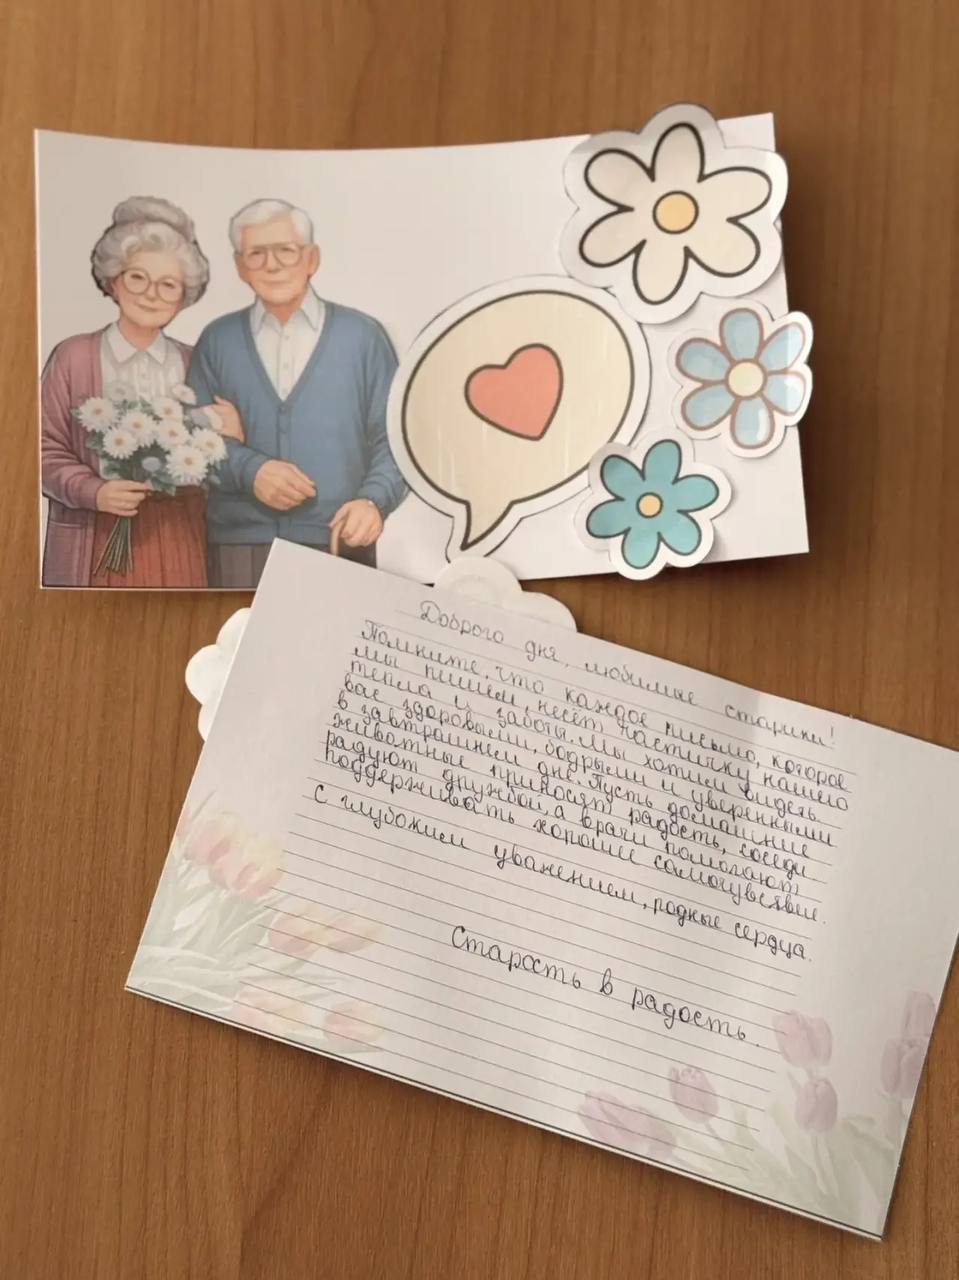 Доброго дня, любимые старики!
Помните, что каждое письмо, которое
мы пишем, несёт частичку нашего
тепла и заботы. Мы хотим видеть
вас здоровыми, бодрыми и уверенными
в завтрашнем дне. Пусть домашние
животные приносят радость, соседи
радуют дружбой, а врачи помогают
поддерживать хорошее самочувствие.
С глубоким уважением, родные сердца.
Старость в радость.